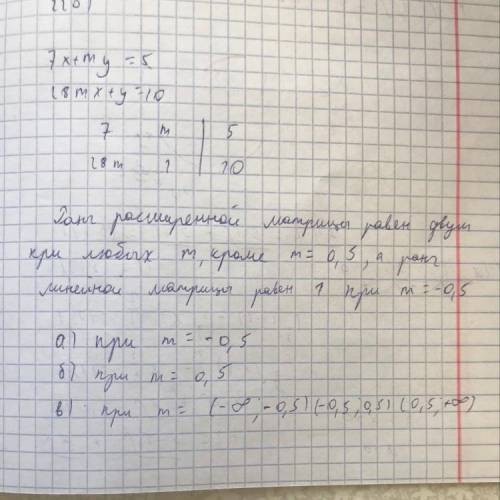 7x+my=5
28mx+y=10
7 m | 5
28m 1 | 10
Ранг расширенной матрицы равен двум
при любых m, кроме m= 0,5, а ранг
линейной матрицы равен 1 при m=-0,5
а) при m= -0,5
б) при m= 0,5
в) при m= (-∞;-0,5)(-0,5;0,5)(0,5;+∞)